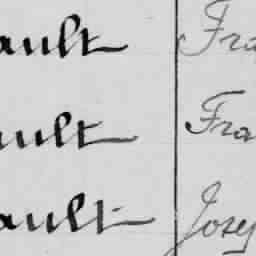 ault Fra
ault Fra
ault Josep